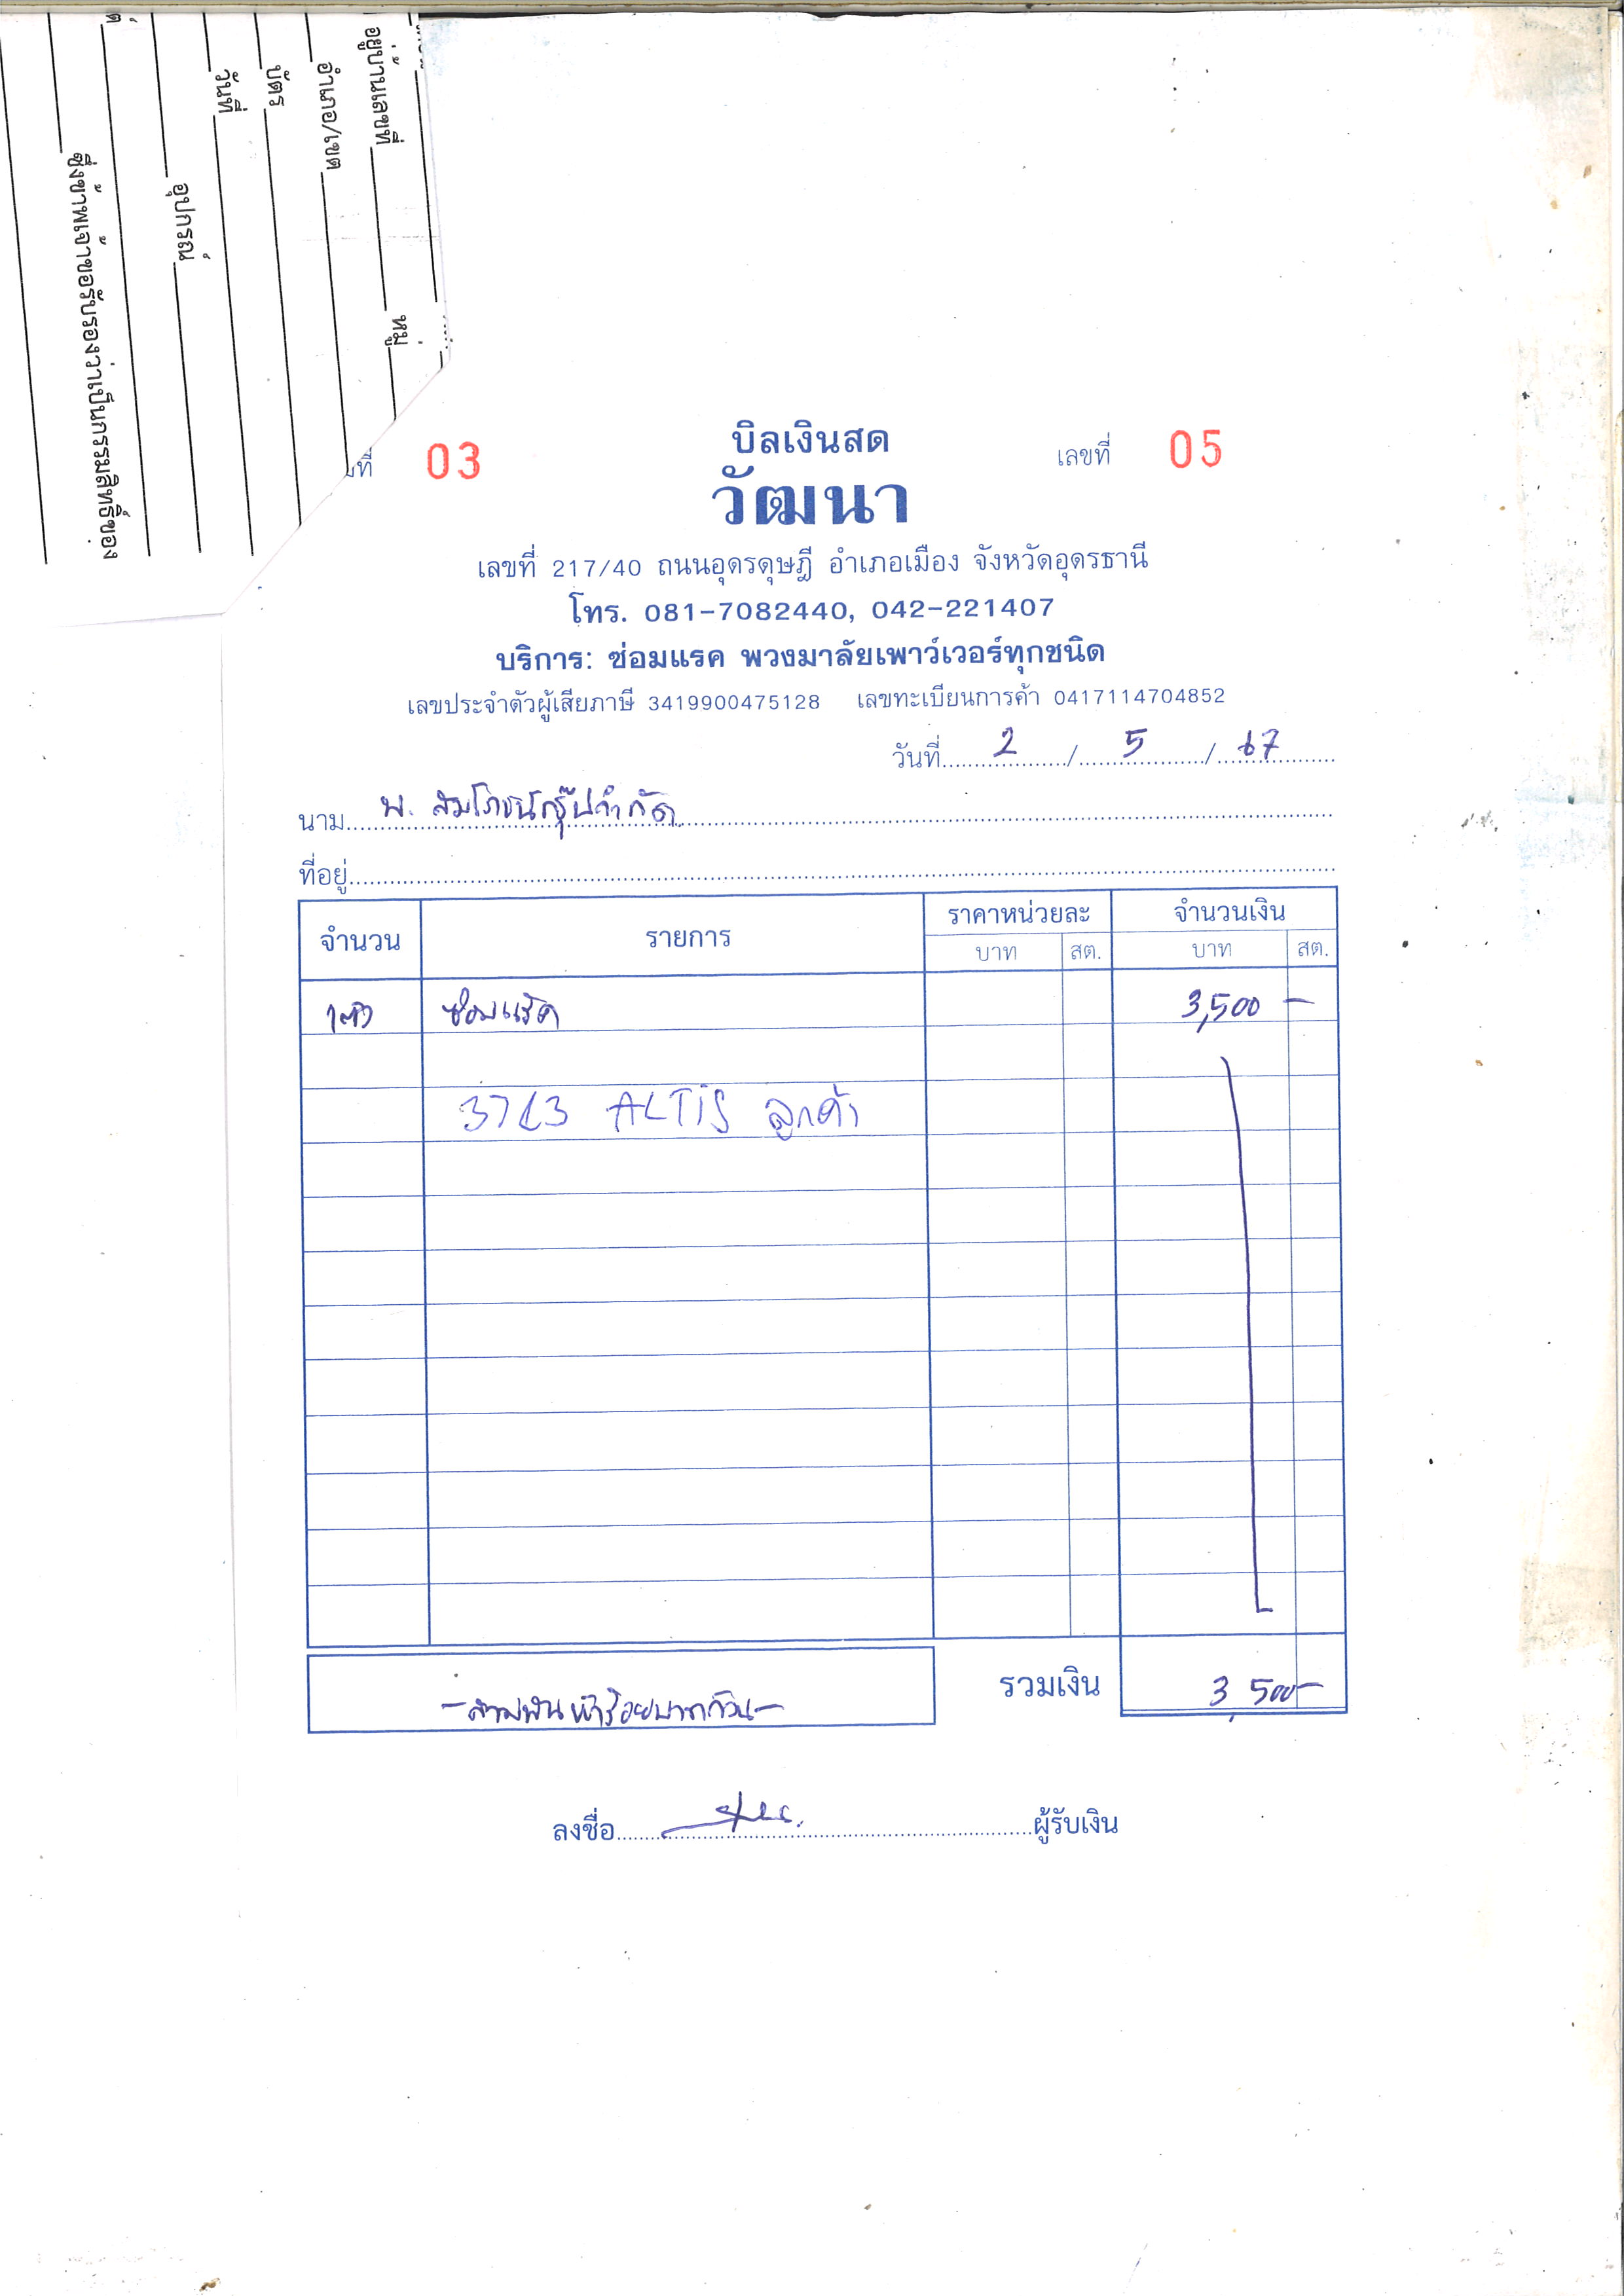 อยู่บ้านเลขที่ หมู่
อำเภอ/เขต
บัตร
วันที่
อุปกรณ์
ซึ่งข้าพเจ้าขอรับรองว่าเป็นกรรมสิทธิ์ของ
ที่ 03
บิลเงินสด
เลขที่ 05
วัฒนา
เลขที่ 217/40 ถนนอุดรดุษฎี อำเภอเมือง จังหวัดอุดรธานี
โทร. 081-7082440, 042-221407
บริการ: ซ่อมแรค พวงมาลัยเพาว์เวอร์ทุกชนิด
เลขประจำตัวผู้เสียภาษี 3419900475128 เลขทะเบียนการค้า 0417114704852
วันที่ 2 / 5 / 67
นาม บ. สมโภชน์กรุ๊ปจำกัด
ที่อยู่
จำนวน รายการ ราคาหน่วยละ จำนวนเงิน
บาท สต. บาท สต.
1ตัว ซ่อมแร็ค 3,500 -
ALTIS ลูกค้า
-สามพันห้าร้อยบาทถ้วน- รวมเงิน 3,500-
ลงชื่อ ผู้รับเงิน